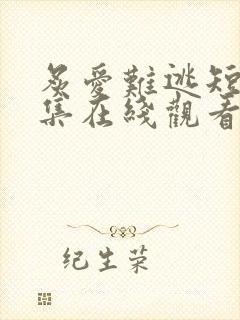 炙愛難逃短
集在綫觀看
纪生荣